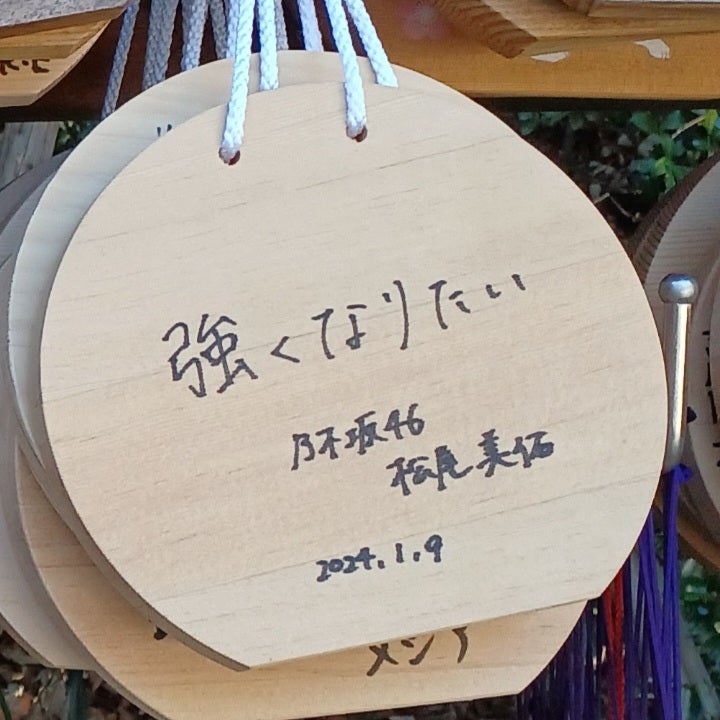 強くなりたい
乃木坂46
松尾美佑
2024.1.9